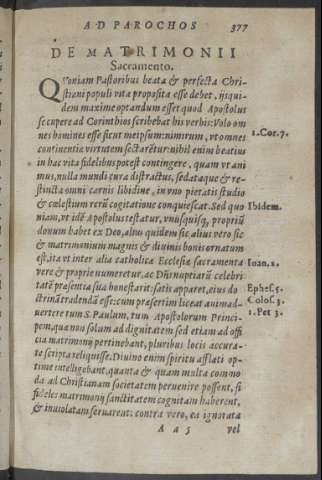 AD PAROCHOS 377
DE MATRIMONII
Sacramento.
QVoniam Pastoribus beata & perfecta Chri-
stiani populi vita proposita esse debet, ijsqui-
dem maxime optandum esset quod Apostolus
se cupere ad Corinthios scribebat his verbis: Volo om
nes homines esse sicut meipsum: nimirum, vt omnes 1.Cor.7.
continentiæ virtutem sectarētur: nihil enim beatius
in hac vita fidelibus potest contingere, quam vt ani
mus, nulla mundi cura distractus, sedataque & re-
stincta omni carnis libidine, in vno pietatis studio
& cœlestium rerū cogitatione conquiescat. Sed quo Ibidem.
niam, vt idē Apostolus testatur, vnusquisq; propriū
donum habet ex Deo, alius quidem sic, alius vero sic
& matrimonium magnis & diuinis bonis ornatum
est, ita vt inter alia catholicæ Ecclesiæ sacramenta Ioan.2.
vere & proprie numeretur, ac Dn̄s nuptiarū celebri
tatē præsentia sua honestarit: satis apparet, eius do Ephes.5.
ctrinā tradendā esse: cum præsertim liceat animad- Colos.3.
uertere tum S. Paulum, tum Apostolorum Princi- 1.Pet.3.
pem, quæ non solum ad dignitatem sed etiam ad offi
cia matrimonij pertinebant, pluribus locis accura-
te scripta reliquisse. Diuino enim spiritu afflati op-
time intelligebant, quanta & quam multa commo
da ad Christianam societatem peruenire possent, si
fideles matrimonij sanctitatem cognitam haberent,
& inuiolatam seruarent: contra vero, ea ignorata
A a 5 vel